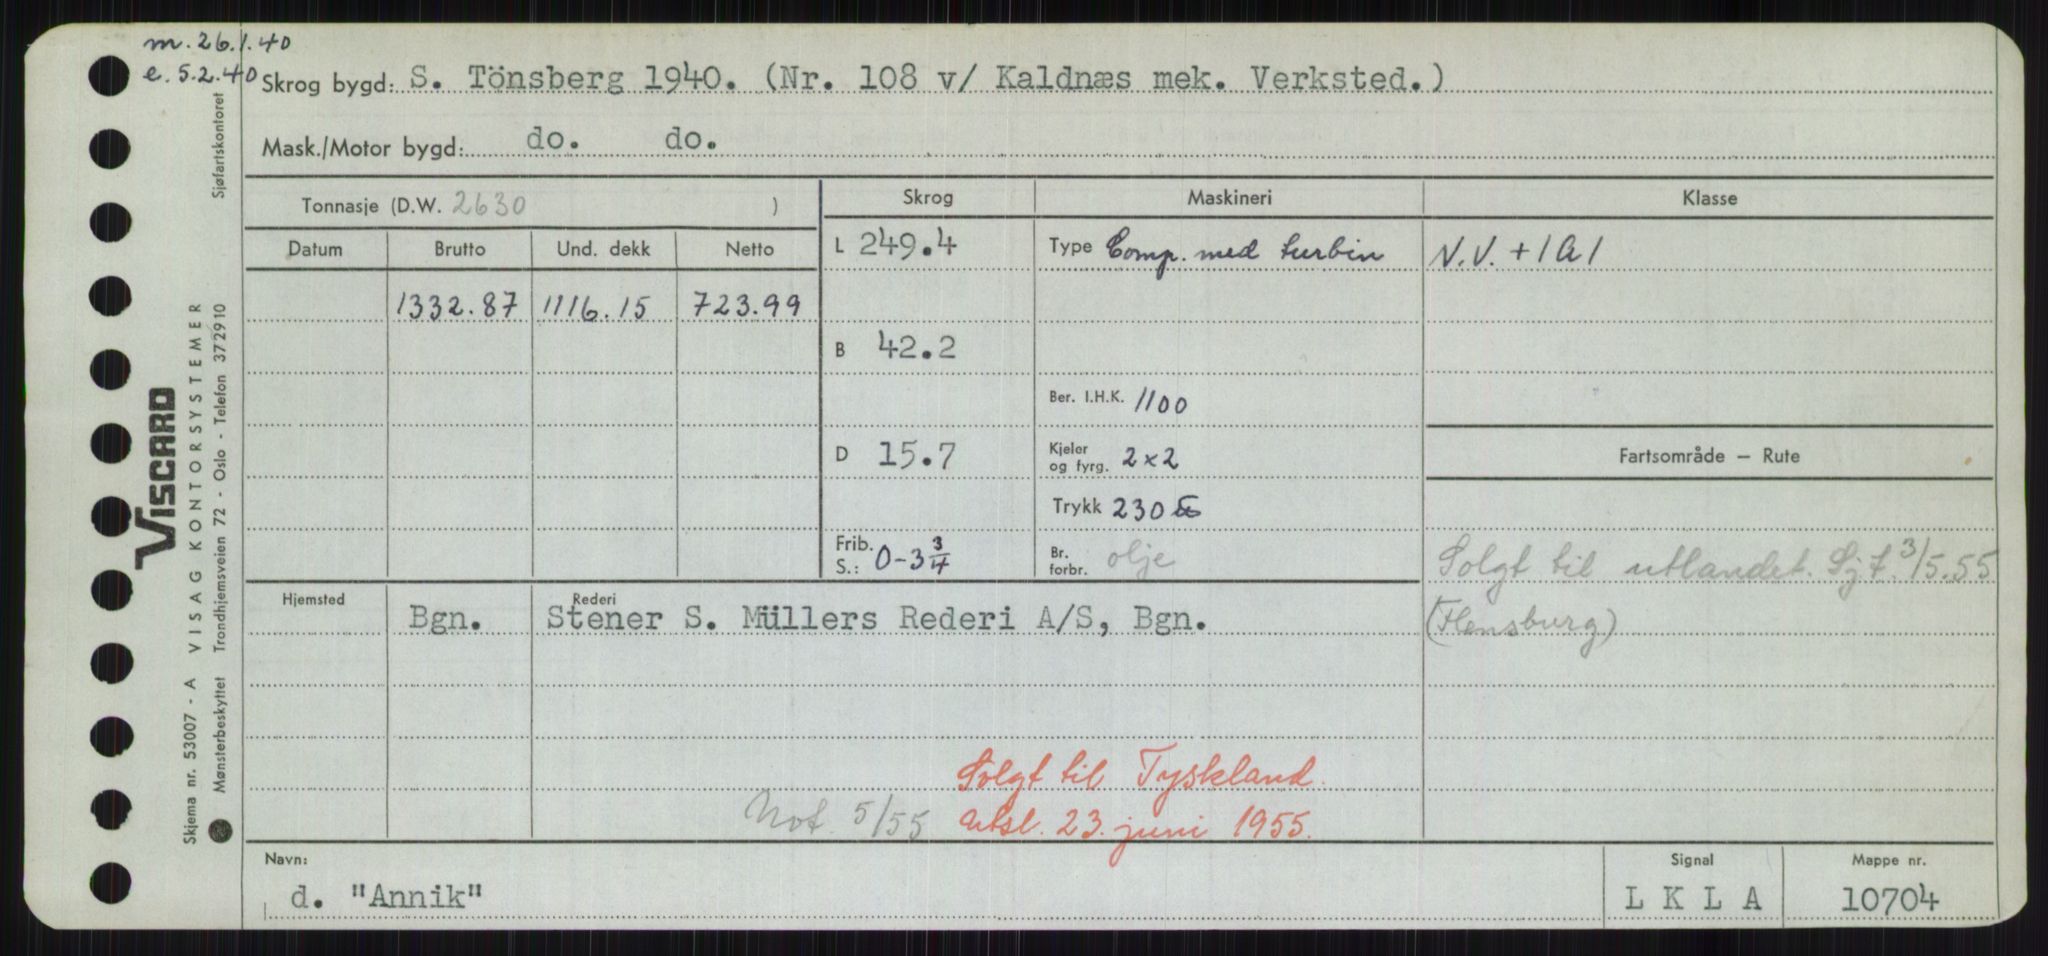 m. 26.1.40
e. 5.2.40
Skrog bygd: S. Tönsberg 1940. (Nr. 108 v/ Kaldnæs mek. Verksted.)
Mask./Motor bygd: do. do.
Tonnasje (D.W. 2630 )
Skrog Maskineri Klasse
Datum Brutto Und. dekk Netto
L 249.4 Type Comp. med turbin N.V. + 1A1
1332.87 1116.15 723.99
B 42.2
Ber. I.H.K. 1100
D 15.7 Kjeler og fyrg. 2x2
Fartsområde – Rute
Trykk 230
Frib. S.: 0-3 3/4 Br. forbr. olje
Solgt til utlandet. Sjf. 3/5.55
(Flensburg)
Hjemsted Rederi
Bgn. Stener S. Müllers Rederi A/S, Bgn.
Solgt til Tyskland.
Not. 5/55 utsl. 23. juni 1955.
Navn: Signal Mappe nr.
d. "Annik" L K L A 10704
Sjøfartskontoret
VISCARD
VISAG KONTORSYSTEMER
Trondhjemsveien 72 - Oslo - Telefon 372910
Skjema nr. 53007 - A
Mønsterbeskyttet